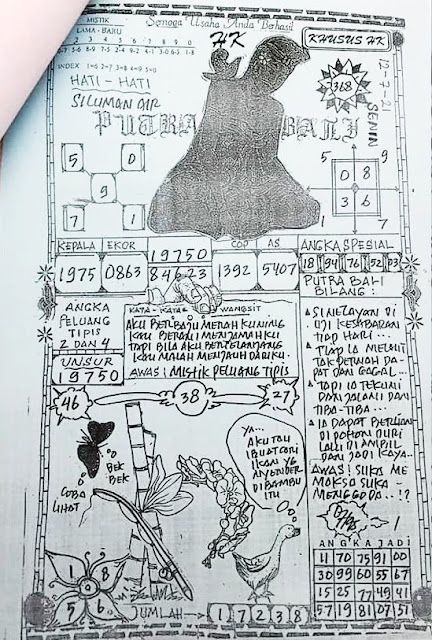 MISTIK
LAMA - BARU
Semoga Usaha Anda Berhasil
HK
KHUSUS HK
2 3 4 5 6 7 8 9 0
INDEX 1=6 2=7 3=8 4=9 5=0
HATI - HATI
SILUMAN AIR
PUTRA BALI
368
12-7-21
SENIN
5 0
9
7 1
5 9
0 8
3 6
1 7
KEPALA EKOR 19750 COP AS ANGKA SPESIAL
1975 0863 84623 1392 5407
18 94 76 52 03
ANGKA
PELUANG
TIPIS
2 DAN 4
UNSUR
19750
KATA - KATA WANGSIT
AKU BERBAJU MERAH KUNING
KAU BERANI MENJAMAHKU
TAPI BILA AKU BERTELANJANG
KAU MALAH MENJAUH DARIKU.
AWAS! MISTIK PELUANG TIPIS
PUTRA BALI
BILANG :
SI NELAYAN DI
UJI KESABARAN
TIAP HARI...
TIAP IA MELAUT
TAK PERNAH DA-
PAT DAN GAGAL...
TAPI IA TEKUNI
DAN JALANI DAN
TIBA-TIBA...
IA DAPAT BERLIAN
DI POHON DURI
LALU DI AMBIL
DAN JADI KAYA...
AWAS! SUKA ME
MAKSA SUKA
MENGGODA..!?
46 38 27
BEK
BEK
COBA
LIHAT
YA...
AKU TAU
IKAN YG
DI BAMBU
ITU
1 8
5 6
JUMLAH → 1 7 2 3 8
ANGKA JADI
11 70 75 91 00
30 99 60 55 67
15 25 77 49 41
57 19 81 07 51